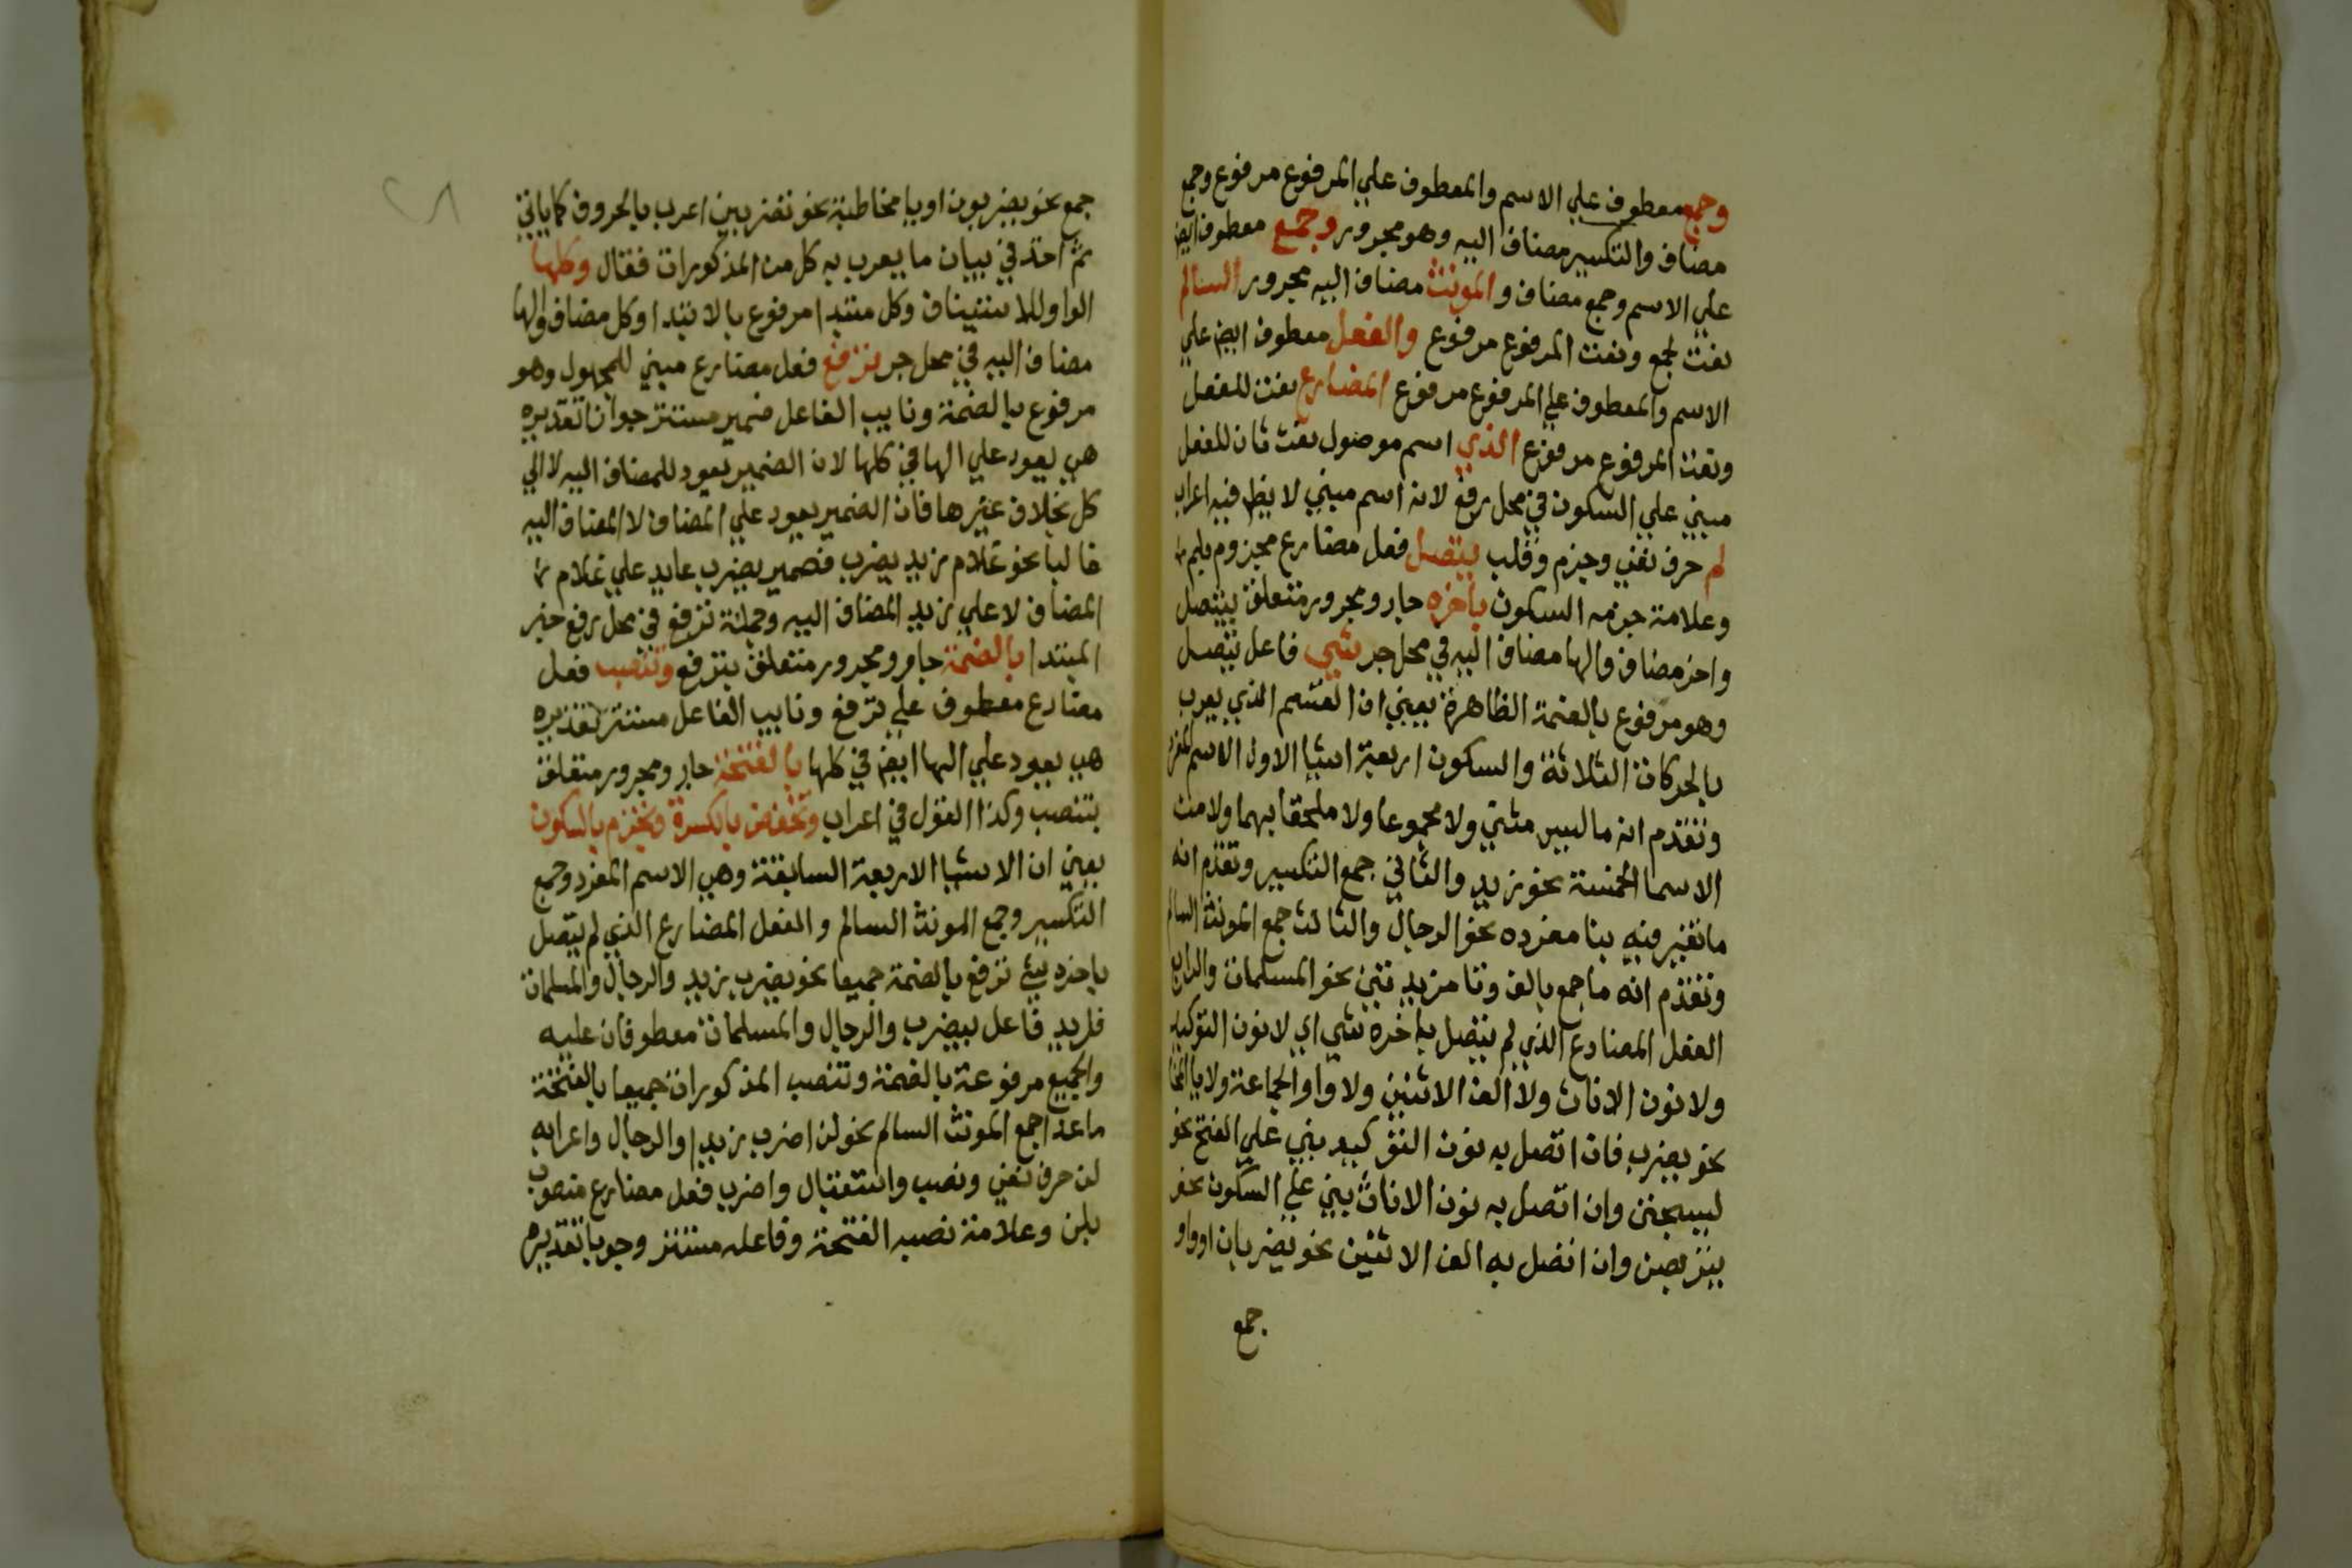 وجمع معطوف علي الاسم والمعطوف علي المرفوع مرفوع وجمع
مضاف والتكسير مضاف اليه وهو مجرور وجمع معطوف ايض
علي الاسم وجمع مضاف والمونث مضاف اليه مجرور السالم
نعت لجمع ونعت المرفوع مرفوع والفعل معطوف ايض علي
الاسم والمعطوف علي المرفوع مرفوع المضارع نعت للفعل
ونعت المرفوع مرفوع الذي اسم موصول نعت ثان للفعل
مبني علي السكون في محل رفع لانه اسم مبني لا يظهر فيه اعراب
لم حرف نفي وجزم وقلب يتصل فعل مضارع مجزوم بلم
وعلامة جزمه السكون باخره جار ومجرور متعلق بيتصل
واخر مضاف والها مضاف اليه في محل جر شي فاعل يتصل
وهو مرفوع بالضمة الظاهرة يعني ان القسم الذي يعرب
بالحركات الثلاثة والسكون اربعة اشيا الاول الاسم المفرد
وتقدم انه ما ليس مثني ولا مجموعا ولا ملحقا بهما ولا من
الاسما الخمسة نحو زيد والثاني جمع التكسير وتقدم انه
ما تغير فيه بنا مفرده نحو الرجال والثالث جمع المونث السالم
وتقدم انه ما جمع بالف وتا مزيدتين نحو المسلمات والرابع
الفعل المضارع الذي لم يتصل باخره شي اي لا نون التوكيد
ولا نون الاناث ولا الف الاثنين ولا واو الجماعة ولا يا
نحو يضرب فان اتصل به نون التوكيد بني علي الفتح نحو
ليسجنن وان اتصل به نون الاناث بني علي السكون نحو
يتربصن وان اتصل به الف الاثنين نحو يضربان او واو
جمع
جمع نحو يضربون او يا مخاطبة نحو تضربين اعرب بالحروف كما ياتي
ثم اخذ في بيان ما يعرب به كل من المذكورات فقال وكلها
الواو للاستيناف وكل مبتدا مرفوع بالابتدا وكل مضاف والها
مضاف اليه في محل جر ترفع فعل مضارع مبني للمجهول وهو
مرفوع بالضمة ونايب الفاعل ضمير مستتر جوازا تقديره
هي يعود علي الها في كلها لان الضمير يعود للمضاف اليه لا الي
كل بخلاف غيرها فان الضمير يعود علي المضاف لا المضاف اليه
غالبا نحو غلام زيد يضرب فضمير يضرب عايد علي غلام
المضاف لا علي زيد المضاف اليه وجملة ترفع في محل رفع خبر
المبتدا بالضمة جار ومجرور متعلق بترفع وتنصب فعل
مضارع معطوف علي ترفع ونايب الفاعل مستتر تقديره
هي يعود علي الها ايض في كلها بالفتحة جار ومجرور متعلق
بتنصب وكذا القول في اعراب وتخفض بالكسرة وتجزم بالسكون
يعني ان الاشيا الاربعة السابقة وهي الاسم المفرد وجمع
التكسير وجمع المونث السالم والفعل المضارع الذي لم يتصل
باخره شي ترفع بالضمة جميعا نحو يضرب زيد والرجال والمسلمات
فزيد فاعل بيضرب والرجال والمسلمات معطوفان عليه
والجميع مرفوعة بالضمة وتنصب المذكورات جميعا بالفتحة
ما عدا جمع المونث السالم نحو لن اضرب زيدا والرجال واعرابه
لن حرف نفي ونصب واستقبال واضرب فعل مضارع منصوب
بلن وعلامة نصبه الفتحة وفاعله مستتر وجوبا تقديره